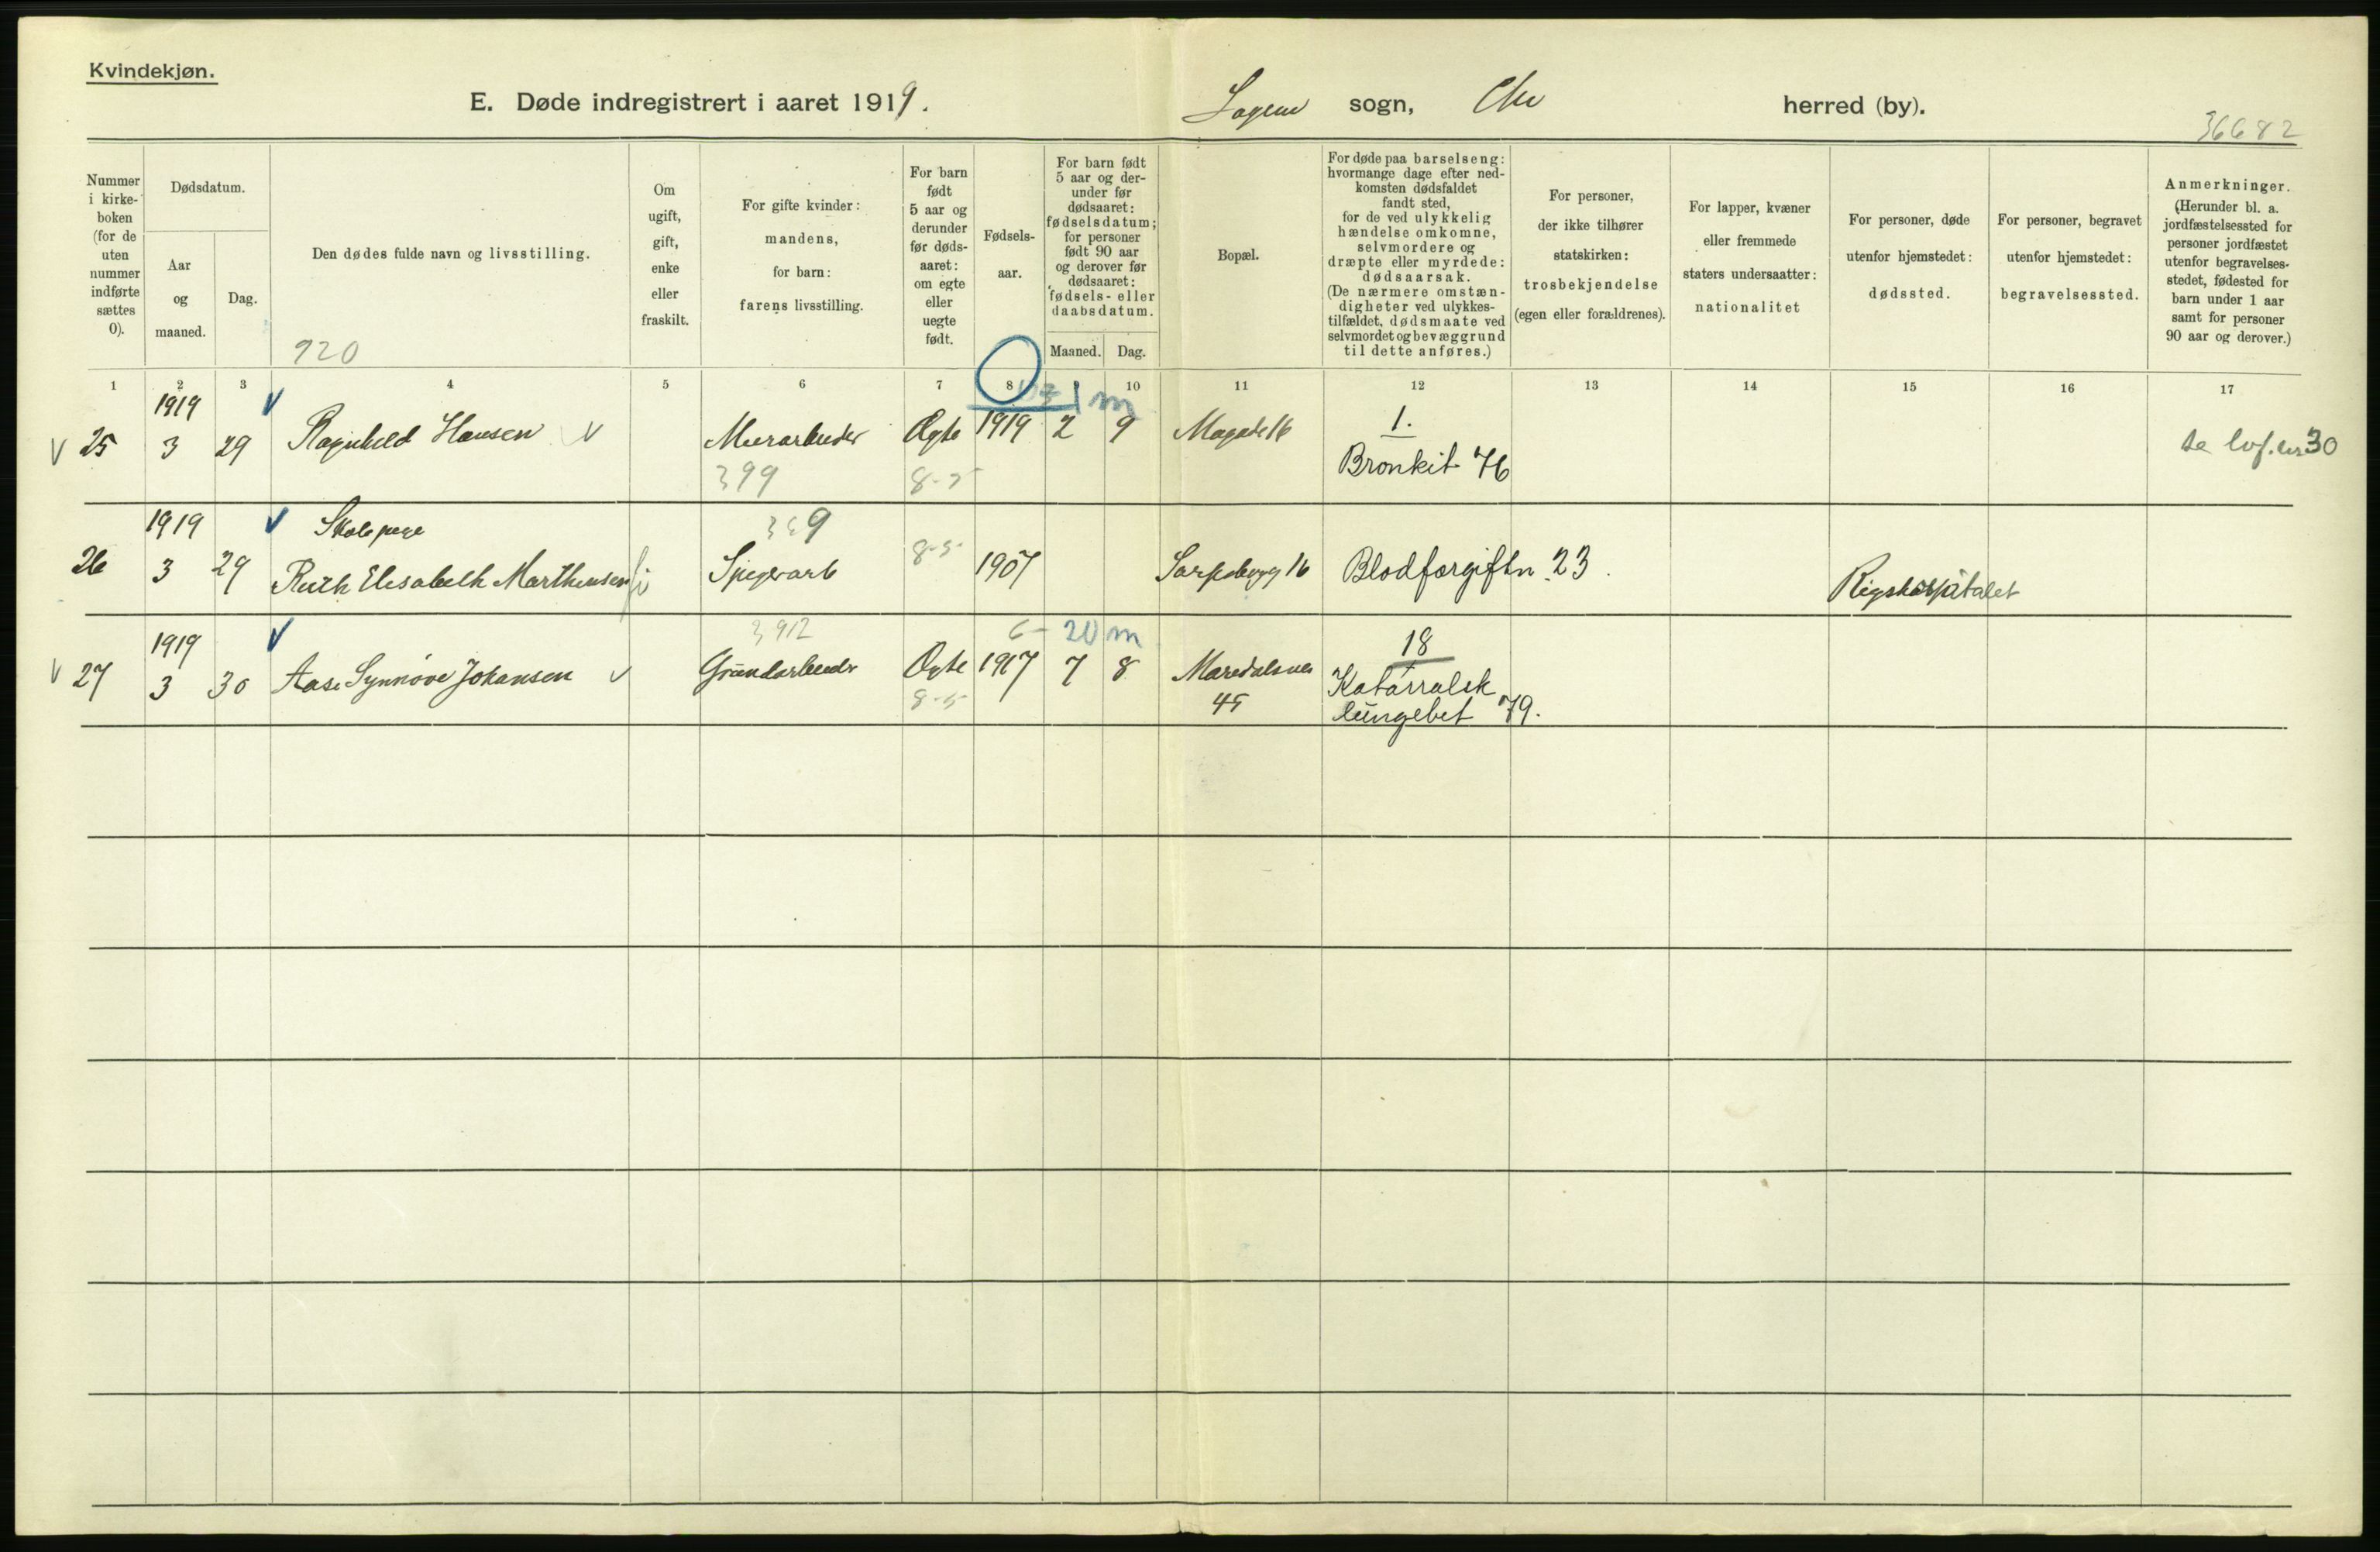 Kvindekjøn.
E. Døde indregistrert i aaret 1919.
sogn,
herred (by).
36682
Nummer i kirke-boken (for de uten nummer indførte sættes 0).
Dødsdatum.
Aar og maaned.
Dag.
Den dødes fulde navn og livsstilling.
920
Om ugift, gift, enke eller fraskilt.
For gifte kvinder: mandens, for barn: farens livsstilling.
For barn født 5 aar og derunder før døds-aaret: om egte eller uegte født.
Fødsels-aar.
For barn født 5 aar og der-under før dødsaaret: fødselsdatum; for personer født 90 aar og derover før dødsaaret: fødsels- eller daabsdatum.
Maaned.
Dag.
Bopæl.
For døde paa barselseng: hvormange dage efter ned-komsten dødsfaldet fandt sted, for de ved ulykkelig hændelse omkomne, selvmordere og dræpte eller myrdede: dødsaarsak. (De nærmere omstæn-digheter ved ulykkes-tilfældet, dødsmaate ved selvmordet og bevæggrund til dette anføres.)
For personer, der ikke tilhører statskirken: trosbekjendelse (egen eller forældrenes).
For lapper, kvæner eller fremmede staters undersaatter: nationalitet
For personer, døde utenfor hjemstedet: dødssted.
For personer, begravet utenfor hjemstedet: begravelsessted.
Anmerkninger. (Herunder bl. a. jordfæstelsessted for personer jordfæstet utenfor begravelses-stedet, fødested for barn under 1 aar samt for personer 90 aar og derover.)
1 2 3 4 5 6 7 8 10 11 12 13 14 15 16 17
1 m
1919
25 3 29 Ragnhild Hansen Murarbeider Ægte 1919 2 9 Magade 16 1.
Bronkit 76
399 8-5
30
1919 Skolepige 349
26 3 29 Ruth Elisabeth Marthinsen 8-5 1907 16 Blodforgiftn. 23. Rigshospitalet
1919 3912 20 m
27 3 30 Aase Synnøve Johansen Grundarbeider Ægte 1917 7 8 Maridalsvei 45 18
Katarralsk
lungebet 79.
8-5